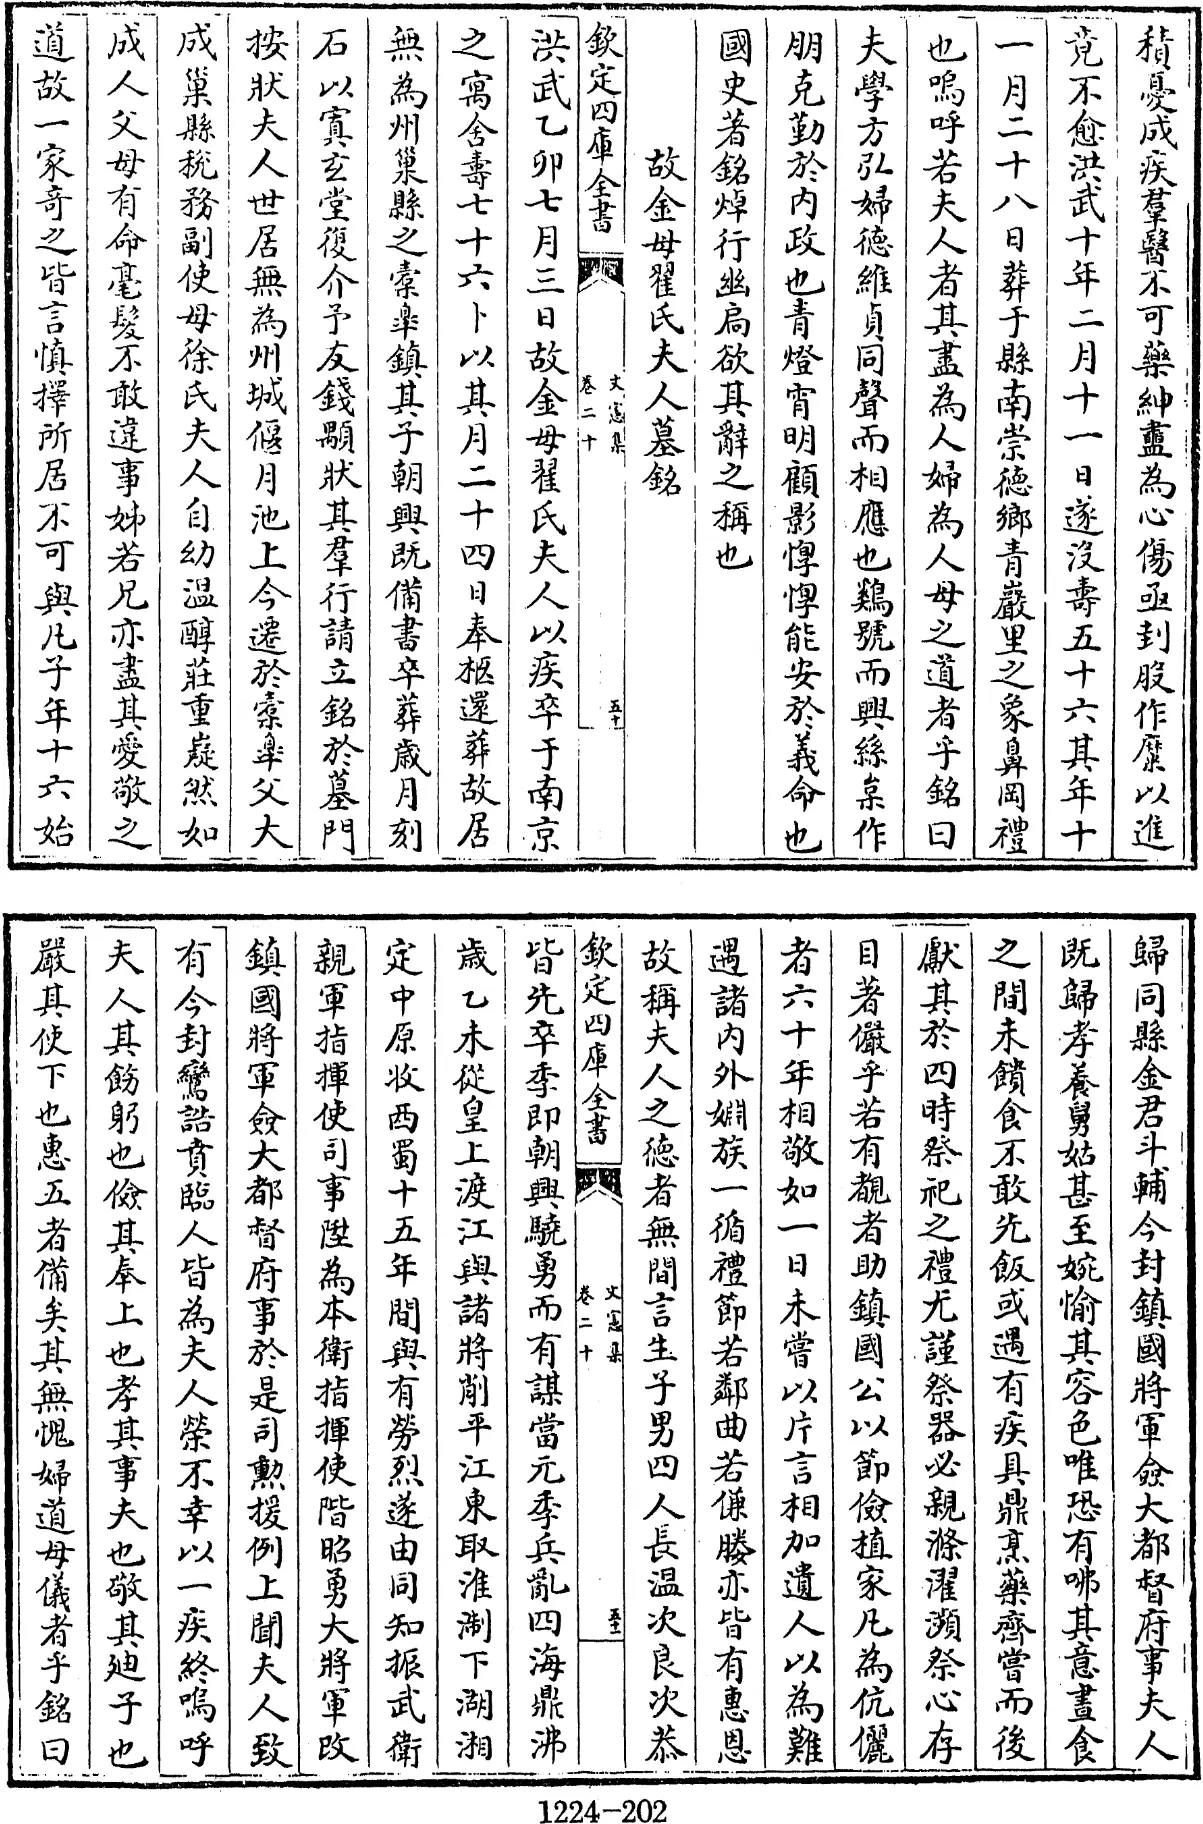 積憂成疾羣醫不可藥紳衋為心傷亟刲股作糜以進
竟不愈洪武十年二月十一日遂沒壽五十六其年十
一月二十八日葬于縣南崇德鄉青巖里之象鼻岡禮
也嗚呼若夫人者其盡為人婦為人母之道者乎銘曰
夫學方弘婦德維貞同聲而相應也鷄號而興絲枲作
朋克勤於內政也青燈宵明顧影惸惸能安於義命也
國史著銘焯行幽扃欲其辭之稱也
故金母翟氏夫人墓銘
欽定四庫全書
文憲集
卷二十
五十
洪武乙卯七月三日故金母翟氏夫人以疾卒于南京
之寓舍壽七十六卜以其月二十四日奉柩還葬故居
無為州巢縣之槖皐鎮其子朝興既備書卒葬歲月刻
石以寘玄堂復介予友錢顒狀其羣行請立銘於墓門
按狀夫人世居無為州城偃月池上今遷於槖皐父大
成巢縣稅務副使母徐氏夫人自幼温醇莊重嶷然如
成人父母有命毫髮不敢違事姊若兄亦盡其愛敬之
道故一家奇之皆言慎擇所居不可與凡子年十六始
歸同縣金君斗輔今封鎮國將軍僉大都督府事夫人
既歸孝養舅姑甚至婉愉其容色唯恐有咈其意晝食
之間未饋食不敢先飯或遇有疾具鼎烹藥齊嘗而後
獻其於四時祭祀之禮尤謹祭器必親滌濯瀕祭心存
目著儼乎若有覩者助鎮國公以節儉植家凡為伉儷
者六十年相敬如一日未嘗以片言相加遺人以為難
遇諸內外婣族一循禮節若鄰曲若傔媵亦皆有惠恩
故稱夫人之德者無間言生子男四人長温次良次恭
欽定四庫全書
文憲集
卷二十
五十一
皆先卒季即朝興驍勇而有謀當元季兵亂四海鼎沸
歲乙未從皇上渡江與諸將削平江東取淮淛下湖湘
定中原收西蜀十五年間與有勞烈遂由同知振武衛
親軍指揮使司事陞為本衛指揮使階昭勇大將軍改
鎮國將軍僉大都督府事於是司勳援例上聞夫人致
有今封鸞誥賁臨人皆為夫人榮不幸以一疾終嗚呼
夫人其飭躬也儉其奉上也孝其事夫也敬其廸子也
嚴其使下也惠五者備矣其無愧婦道母儀者乎銘曰
1224-202